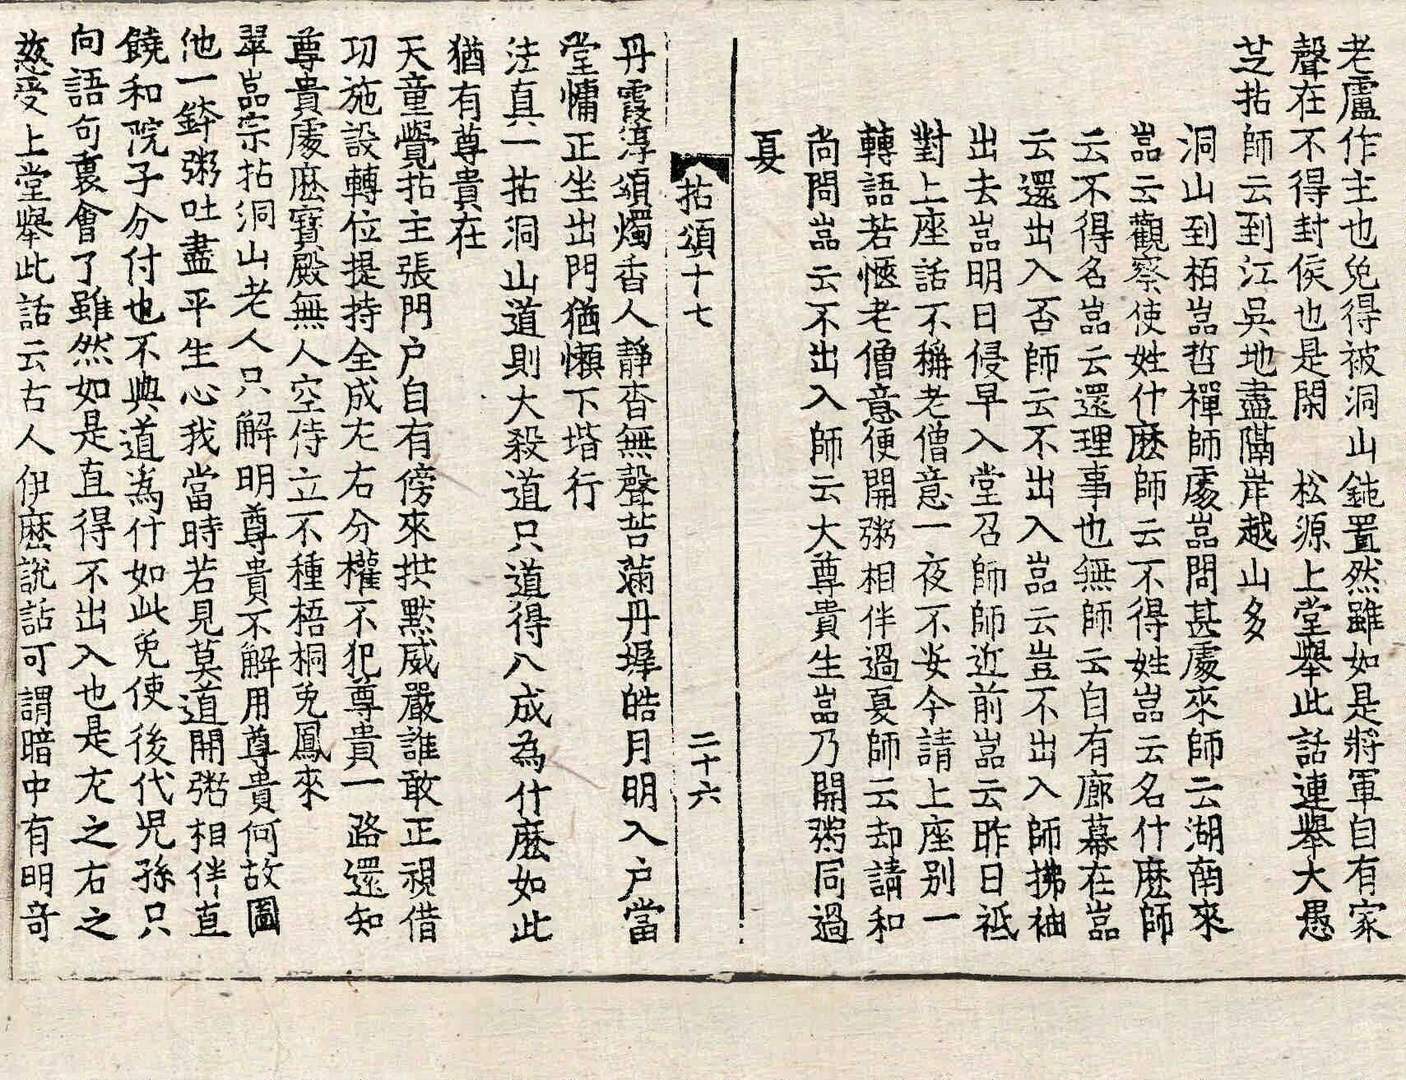 老盧作主也免得被洞山鈍置然雖如是將軍自有家
聲在不得封侯也是閑　松源上堂舉此話連舉大愚
芝拈師云到江吳地盡隔岸越山多
洞山到栢嵓哲禪師處嵓問甚處來師云湖南來
嵓云觀察使姓什麽師云不得姓嵓云名什麽師
云不得名嵓云還理事也無師云自有廊幕在嵓
云還出入否師云不出入嵓云豈不出入師拂袖
出去嵓明日侵早入堂召師師近前嵓云昨日祗
對上座話不稱老僧意一夜不安今請上座別一
轉語若愜老僧意便開粥相伴過夏師云却請和
尚問嵓云不出入師云大尊貴生嵓乃開粥同過
夏
拈頌十七　二十六
丹霞淳頌燭香人靜杳無聲苔滿丹墀皓月明入户當
堂慵正坐出門猶懶下堦行
法真一拈洞山道則大殺道只道得八成為什麽如此
猶有尊貴在
天童覺拈主張門户自有傍來拱默威嚴誰敢正視借
功施設轉位提持全成左右分權不犯尊貴一路還知
尊貴處麽寶殿無人空侍立不種梧桐免鳳來
翠嵓宗拈洞山老人只解明尊貴不解用尊貴何故圖
他一鉢粥吐盡平生心我當時若見莫道開粥相伴直
饒和院子分付也不與道為什如此免使後代兒孫只
向語句裏會了雖然如是直得不出入也是左之右之
慈受上堂舉此話云古人伊麽說話可謂暗中有明奇